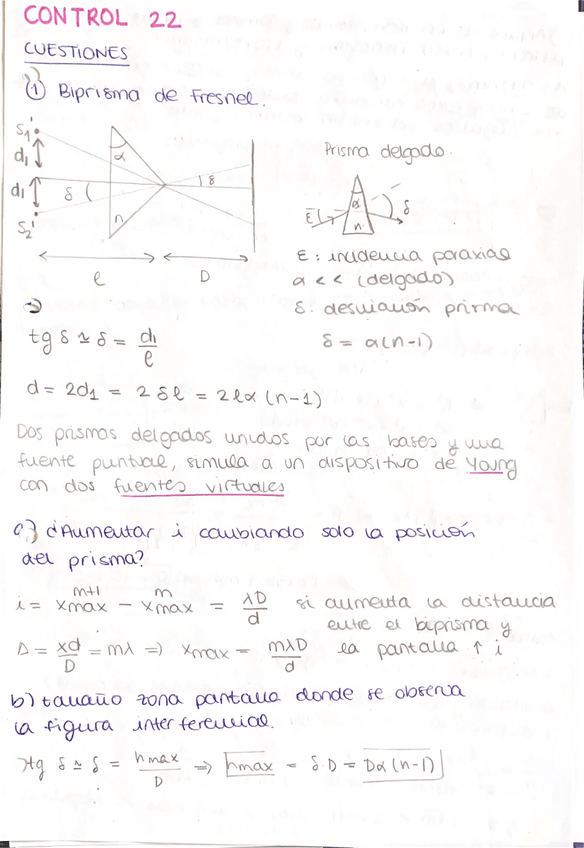 CONTROL 22
CUESTIONES
① Biprisma de Fresnel.
S₁'
d₁
d₁
S₂'
α
δ
δ
n
e
D
Prisma delgado.
ε
α
n
δ
ε: incidencia paraxial
α << (delgado)
δ: desviación prisma
δ = α(n-1)
tg δ ≃ δ = d₁/e
d = 2d₁ = 2δe = 2eα(n-1)
Dos prismas delgados unidos por las bases y una
fuente puntual, simula a un dispositivo de Young
con dos fuentes virtuales
a) ¿Aumentar i cambiando solo la posición
del prisma?
i = x_max^(m+1) - x_max^m = λD/d si aumenta la distancia
entre el biprisma y
Δ = xd/D = mλ => x_max = mλD/d la pantalla ↑ i
b) tamaño zona pantalla donde se observa
la figura interferencial.
tg δ ≃ δ = h_max/D => h_max = δ·D = Dα(n-1)